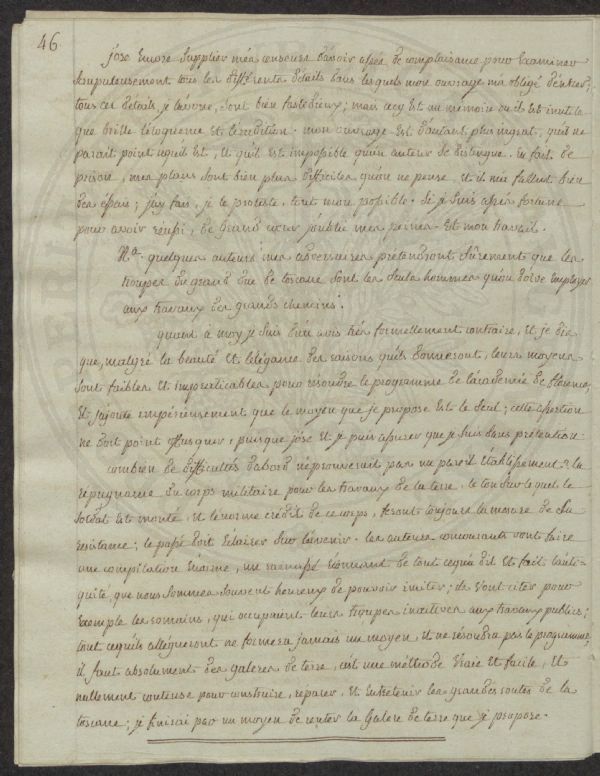 46
j'ose encore supplier mes censeurs d'avoir assés de complaisance pour examiner
scrupuleusement tous les différents détails dans lesquels mon ouvrage m'a obligé d'entrer;
tous ces détails, je l'avoue, sont bien fastidieux; mais cecy est un mémoire ou il est inutile
que brille l'éloquence et l'érudition. mon ouvrage est d'autant plus ingrat, qu'il ne
parait point ce qu'il est, et qu'il est impossible qu'un auteur se distingue. en fait de
prison, mes plans sont bien plus difficiles qu'on ne pense, et il m'a fallut bien
des essais; j'ay fais, je le proteste, tout mon possible. si je suis assés fortuné
pour avoir réussi, de grand cœur j'oublie mes peines et mon travail.
N.a quelques auteurs mes adversaires prétendront sûrement que les
troupes du grand duc de toscane sont les seuls hommes qu'on doive employer
aux travaux des grands chemins.
quant à moy je suis d'un avis très formellement contraire, et je dis
que, malgré la beauté et l'élégance des raisons qu'ils donneront, leurs moyens
sont faibles et impraticables pour resoudre le programme de l'académie de florence,
et j'ajoute impérieusement que le moyen que je propose est le seul; cette assertion
ne doit point offusquer, puisque j'ose et je puis assurer que je suis sans prétention
combien de difficultés d'abord n'éprouveroit pas un pareil établissement? la
répugnance du corps militaire pour les travaux de la terre, le ton sur lequel le
soldat est monté, et l'énorme crédit de ce corps, seront toujours la mesure de sa
resistance; le passé doit eclairer sur l'avenir. les auteurs concourants vont faire
une compilation énorme, un ramassé étonnant de tout cequ'a dit et fait l'anti-
quité, que nous sommes souvent heureux de pouvoir imiter; ils vont citer pour
exemple les romains, qui occupaient leurs troupes inactives aux travaux publics;
tout cequ'ils allégueront ne formera jamais un moyen, et ne résoudra pas le programme;
il faut absolument des galeres de terre, c'est une méthode vraie et facile, et
nullement couteuse pour construire, reparer, et entretenir les grandes routes de la
toscane; je finirai par un moyen de renter la galere de terre que je propose.